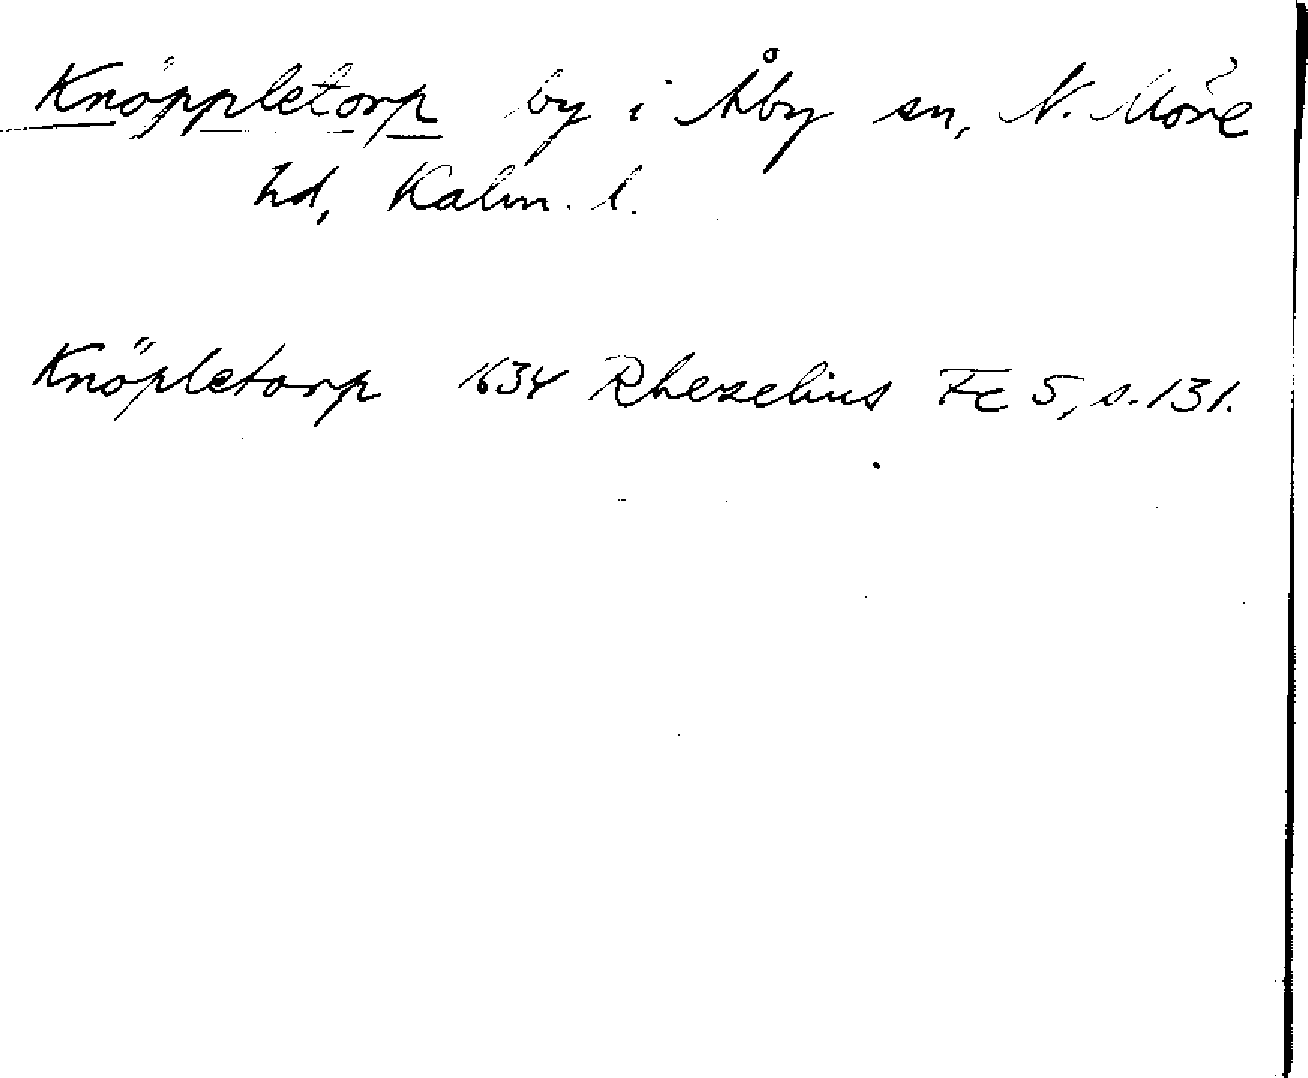 Knöppletorp by i Åby sn, N. Möre
hd, Kalm. l.
Knöpletorp 1634 Rhezelius Fc 5, s. 131.